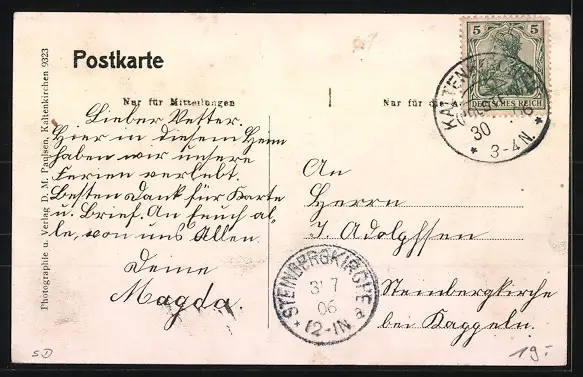 Postkarte
Nur für Mitteilungen
Nur für die
Photographie u. Verlag D. M. Paulsen, Kaltenkirchen 9323
Lieber Vetter.
Hier in diesem Heim
haben wir unsere
Ferien verlebt.
Besten Dank für Karte
u. Brief. An Euch al-
le, von uns Allen.
Deine
Magda.
5 5
DEUTSCHES REICH
KALTENKIRCHEN
30
* 3-4N. *
An
Herrn
J. Adolphsen
Steinbergkirche
bei Kappeln.
STEINBERGKIRCHE
31 7
06
* 12-1N a
SD
19.-